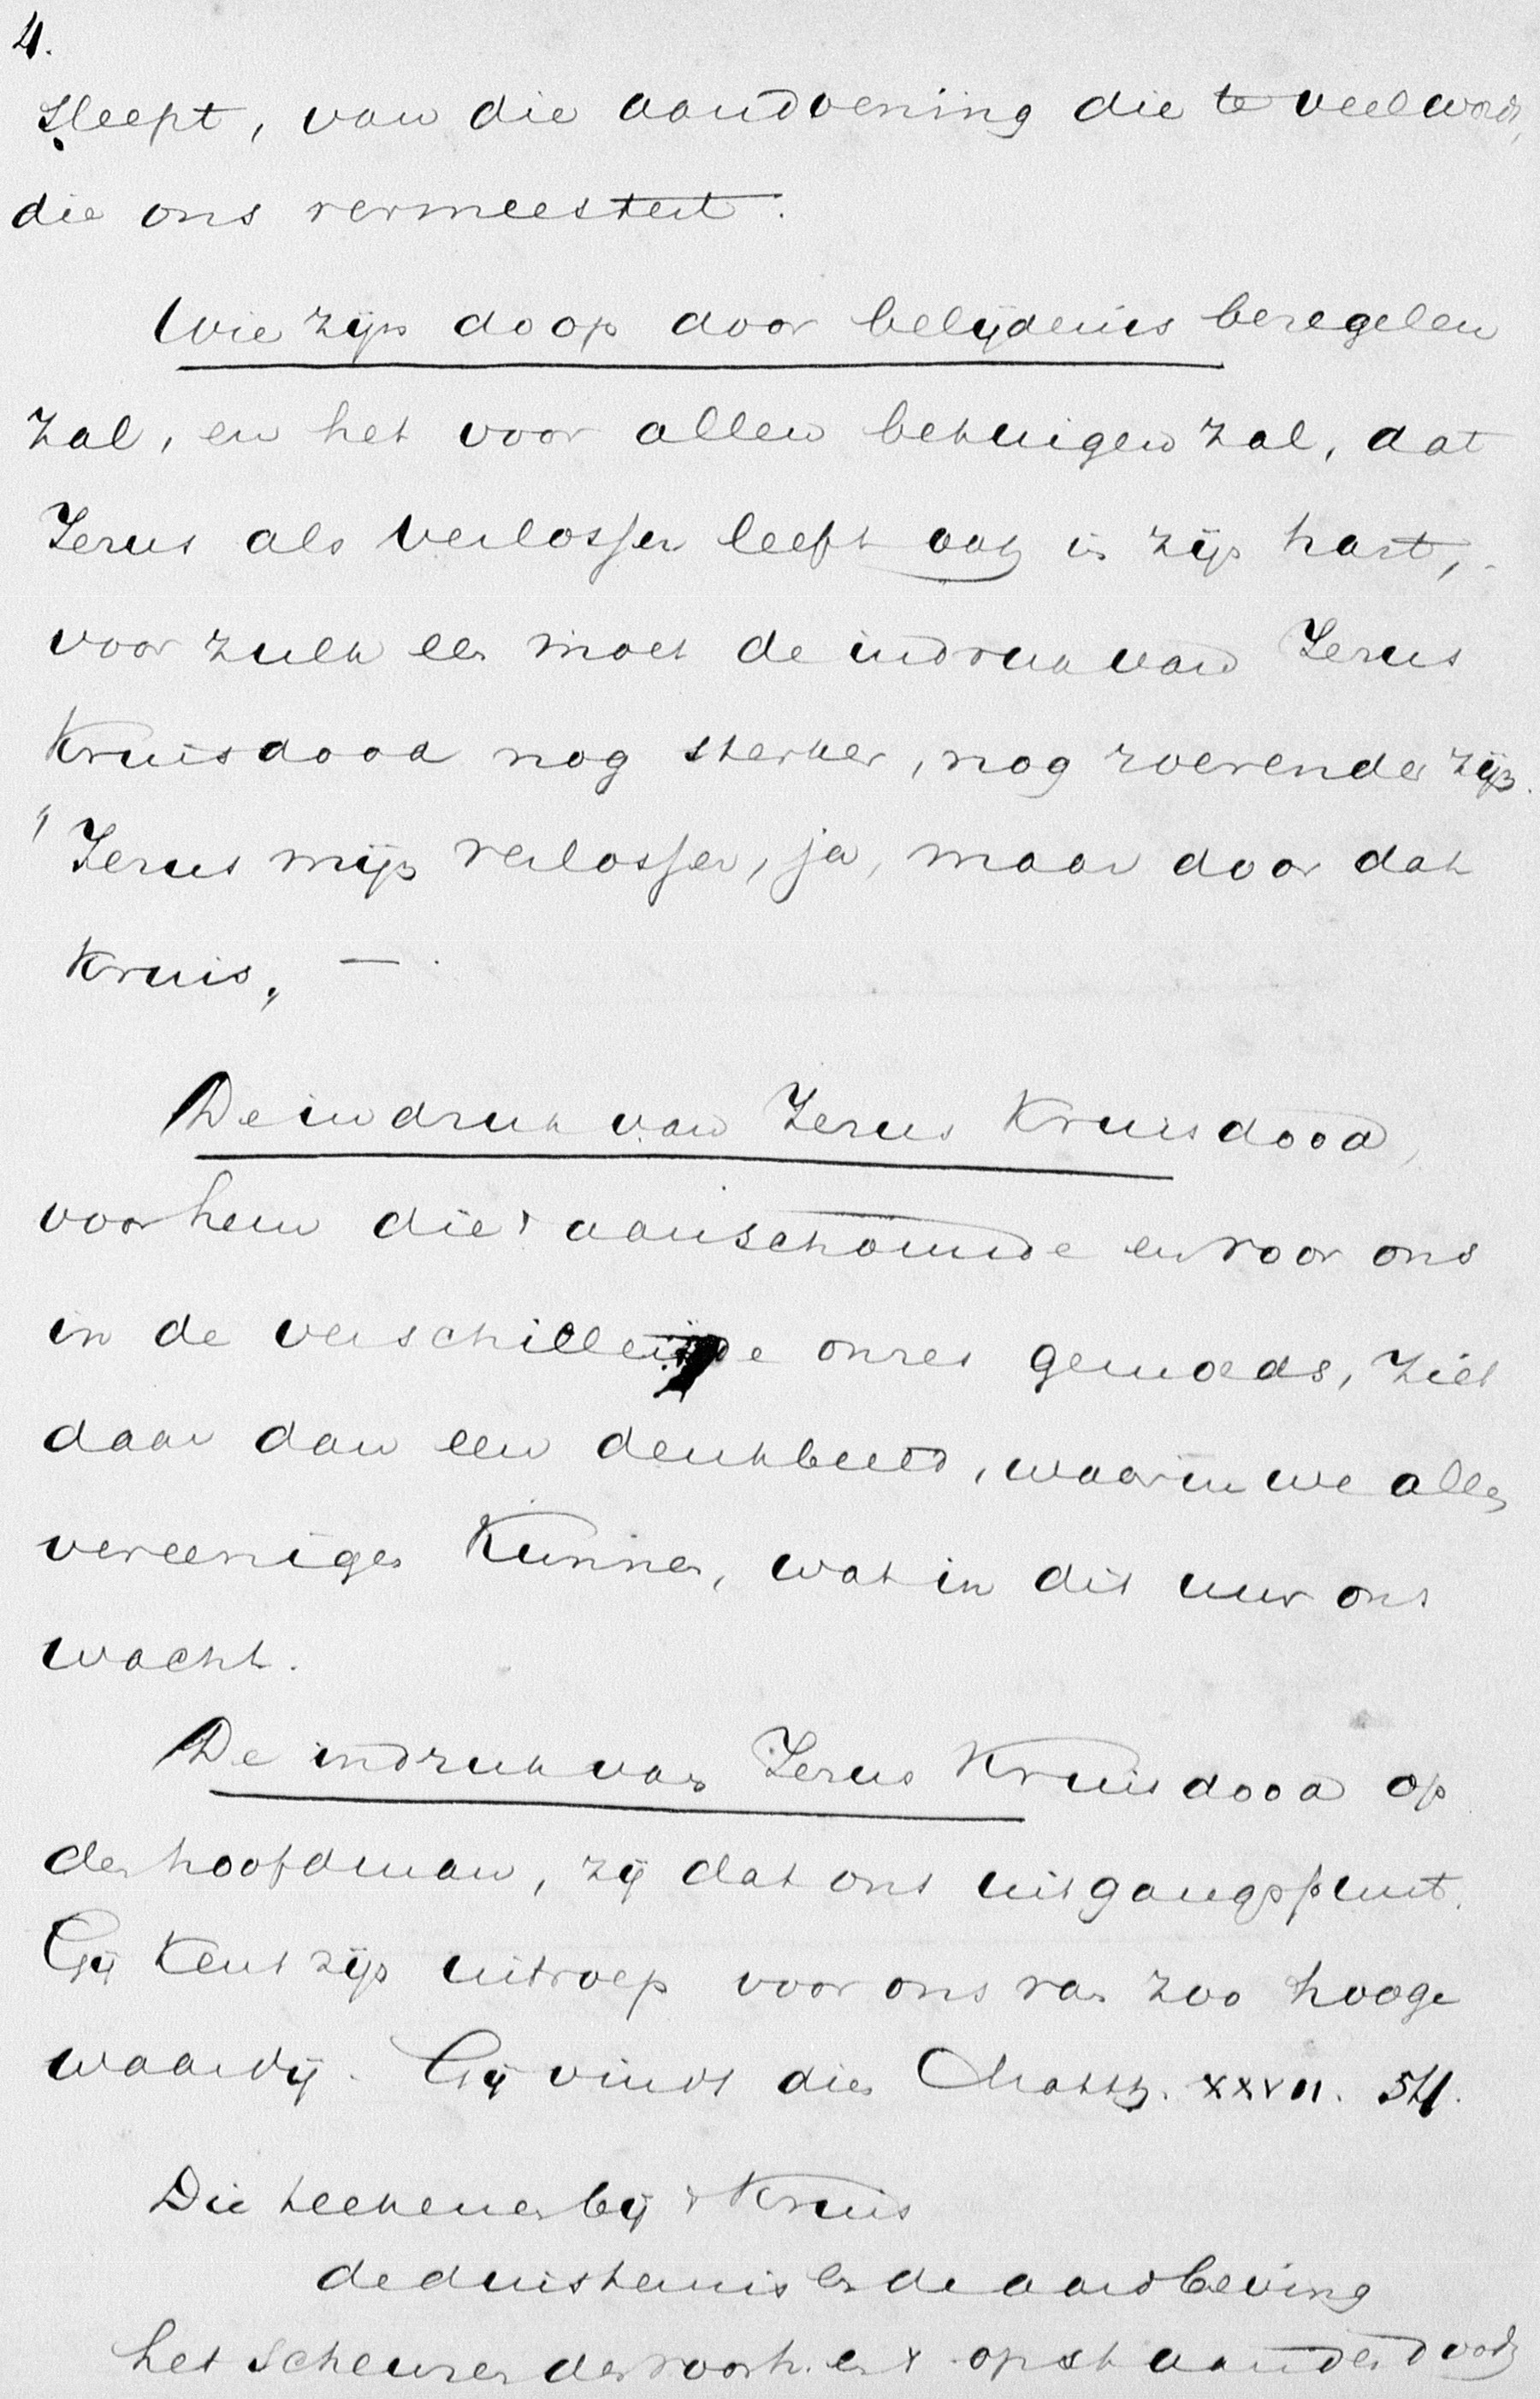 4.
sleept, van die aandoening die te veel wordt,
die ons vermeestert.
Wie zijn doop door belijdenis bezegelen
zal, en het voor allen betuigen zal, dat
Jezus als Verlosser leeft ook in zijn hart,
voor zulk een moet de indruk van Jezus
Kruisdood nog sterker, nog roerender zijn.
"Jezus mijn verlosser, ja, maar door dat
Kruis, —.
De indruk van Jezus Kruisdood,
voor hem die 't aanschouwde en voor ons
in de verschillende onzes gemoeds, ziet
daar dan een denkbeeld, waarin we alles
vereenigen Kunnen, wat in dit uur ons
wacht.
De indruk van Jezus Kruisdood op
den hoofdman, zij dat ons uitgangspunt.
Gij Kent zijn uitroep voor ons van zoo hooge
waardij. Gij vindt dien Matth. XXVII. 54.
Die teekenen bij 't Kruis
de duisternis en de aardbeving
het scheuren der voorh. en 't opst aan der doode